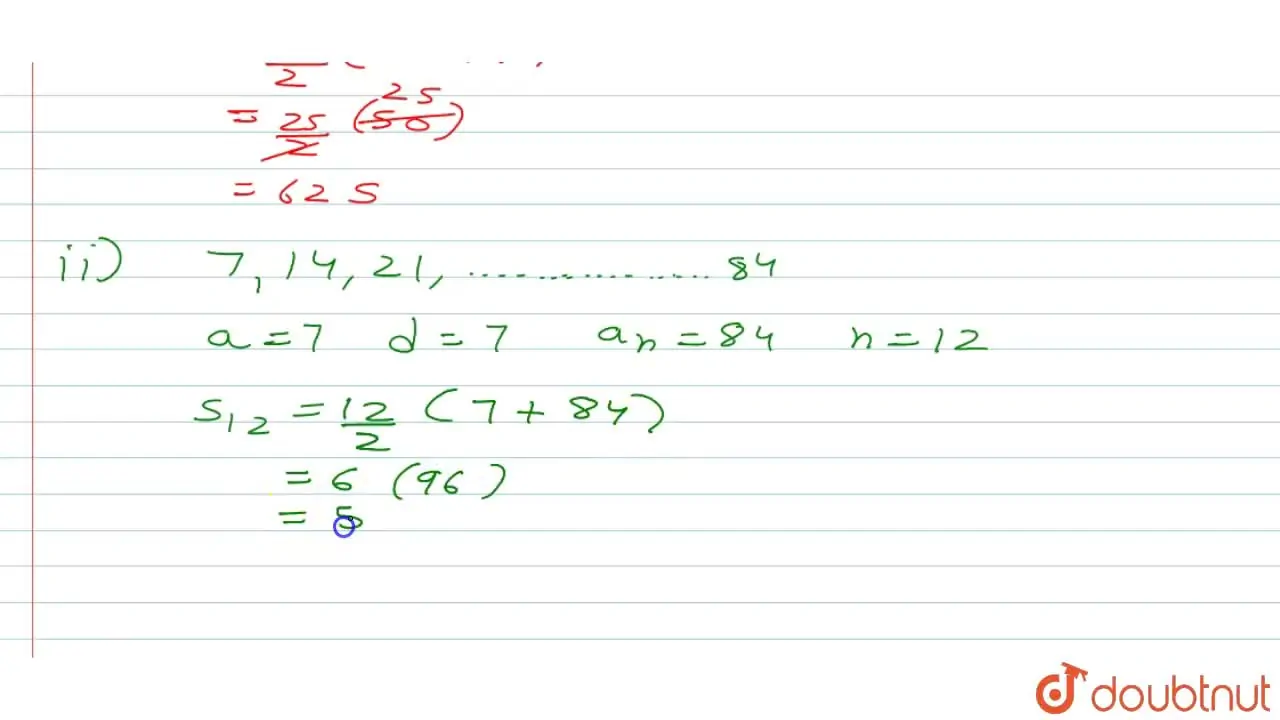 2
25
= 25/2 (50)
= 625
ii) 7, 14, 21, ................ 84
a = 7 d = 7 an = 84 n = 12
S12 = 12/2 (7 + 84)
= 6 (96)
= 5
doubtnut